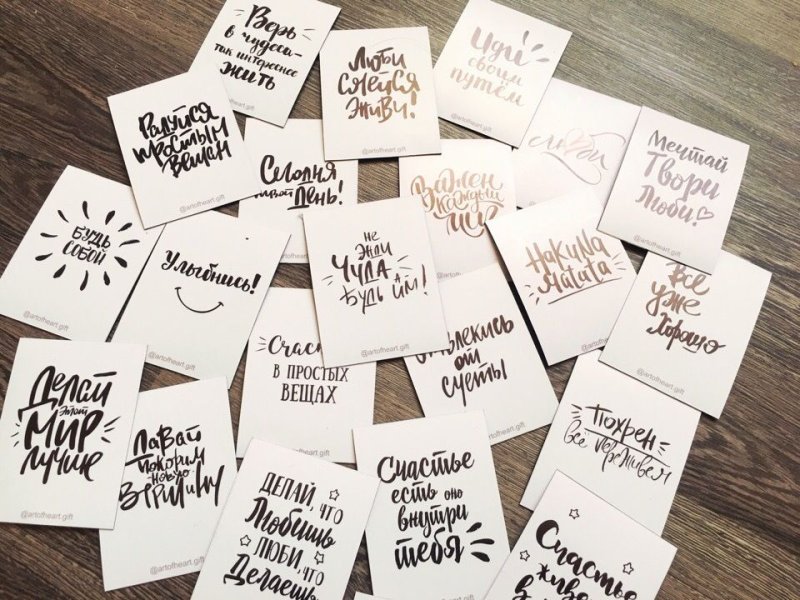 Верь
в чудеса-
так интереснее
жить
Люби
смейся
живи!
@artofheart.gift
Иди
своим
путём
@artofheart.gift
Радуйся
простым
вещам
@artofheart.gift
Сегодня
твой день!
Важен
каждый
миг
Мечтай
Твори
Люби!
@artofheart.gift
Будь
собой
@artofheart.gift
Улыбнись!
@artofheart.gift
Не
жди
чуда
а
будь им!
@artofheart.gift
Hakuna
Matata
@artofheart.gift
Всё
уже
хорошо
@artofheart.gift
в простых
вещах
от
суеты
@artofheart.gift
Делай
этот
мир
лучше
@artofheart.gift
Давай
покорим
новую
вершину
@artofheart.gift
Похрен
всё переживём
Делай, что
любишь
люби, что
делаешь
Счастье
есть оно
внутри
тебя
Счастье